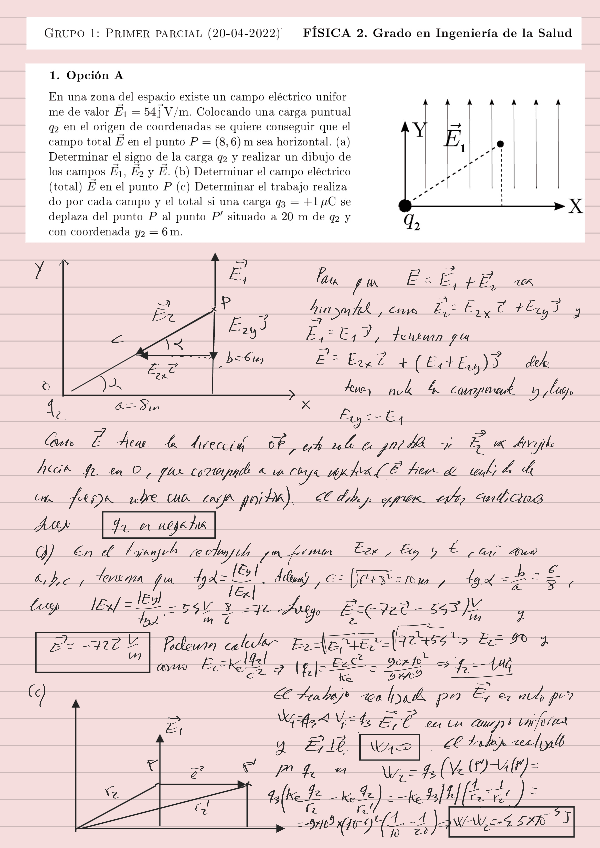 GRUPO 1: PRIMER PARCIAL (20-04-2022) FÍSICA 2. Grado en Ingeniería de la Salud
1. Opción A
En una zona del espacio existe un campo eléctrico unifor-
me de valor E⃗₁ = 54 j⃗ V/m. Colocando una carga puntual
q₂ en el origen de coordenadas se quiere conseguir que el
campo total E⃗ en el punto P = (8, 6) m sea horizontal. (a)
Determinar el signo de la carga q₂ y realizar un dibujo de
los campos E⃗₁, E⃗₂ y E⃗. (b) Determinar el campo eléctrico
(total) E⃗ en el punto P (c) Determinar el trabajo realiza-
do por cada campo y el total si una carga q₃ = +1 μC se
deplaza del punto P al punto P′ situado a 20 m de q₂ y
con coordenada y₂ = 6 m.
Y
E⃗₁
X
q₂
Y
E⃗₁
P
E⃗₂
E₂y j⃗
c
α
b=6m
E₂x i⃗
α
a=8m
X
q₂
Para que E⃗ = E⃗₁ + E⃗₂ sea
horizontal, como E⃗₂ = E₂x i⃗ + E₂y j⃗ y
E⃗₁ = E₁ j⃗, tenemos que
E⃗ = E₂x i⃗ + (E₁ + E₂y) j⃗ debe
tener nula la componente y, luego
E₂y = -E₁
Como E⃗ tiene la dirección OP, esto solo es posible si E⃗₂ va dirigido
hacia q₂ en O, que corresponde a una carga negativa (E⃗ tiene el sentido de
una fuerza sobre una carga positiva). El dibujo expresa estas condiciones
luego q₂ es negativa
En el triángulo rectángulo que forman E₂x, E₂y y E, así como
a, b, c, tenemos que tgα = |Ey|/|Ex|. Además, c = = 10m, tgα = b/a = 6/8,
luego |Ex| = |Ey|/tgα = 54 V/m 8/6 = 72. Luego E⃗₂ = (-72 i⃗ - 54 j⃗) V/m y
E⃗ = -72 i⃗ V/m Podemos calcular E₂ = = E₂ = 90 y
como E₂ = Ke |q₂|/c² ⇒ |q₂| = E₂c²/Ke = 90×10²/9×10⁹ ⇒ q₂ = -1μC
(c)
E⃗₁
P
l⃗
P′
r₂
r₂′
El trabajo realizado por E⃗₁ es nulo por
W₁ = q₃ Δ V₁ = q₃ E⃗₁ l⃗ en un campo uniforme
y E⃗₁ ⊥ l⃗. W₁=0. El trabajo realizado
por q₂ es W₂ = q₃ (V₂(P) - V₂(P′)) =
q₃ (Ke q₂/r₂ - Ke q₂/r₂′) = -Ke q₃ |q₂| (1/r₂ - 1/r₂′) =
= -9×10⁹ × (10⁻⁶)² (1/10 - 1/20) ⇒ W=W₂=-4.5×10⁻⁴ J